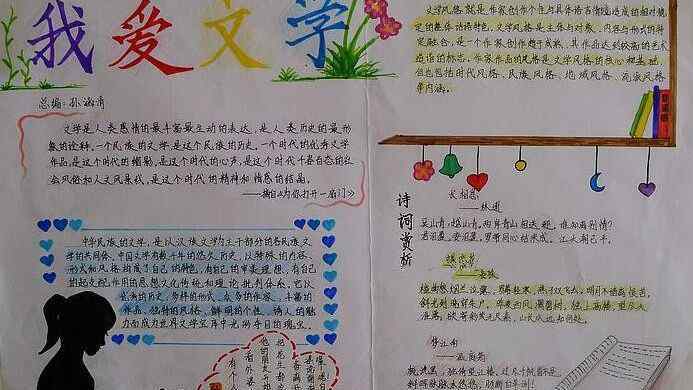 我爱文学
总编：孙淑清
文学是人类感情的最丰富最生动的表达，是人类历史的最形
象的诠释，一个民族的文学，是这个民族的历史。一个时代的优秀文学
作品，是这个时代的缩影，是这个时代的心声，是这个时代千姿百态的社
会风俗和人文风景线，是这个时代的精神和情感的结晶。
——摘自《为你打开一扇门》
中华民族的文学，是以汉族文学为主干部分的各民族文
学的共同体。中国文学有数千年的悠久历史，以特殊的内容、
形式和风格构成了自己的特色，有自己的审美理想，有自己
的起支配作用的思想文化传统和理论批判体系。它以
优秀的历史，多样的形式，众多的作家，丰富的
作品，独特的风格，鲜明的个性，诱人的魅
力而成为世界文学宝库中光彩夺目的瑰宝。
文学风格，就是作家创作个性与具体话语情境造成的相对稳
定的整体话语特色。文学风格是主体与对象、内容与形式的特
定融合，是一个作家创作趋于成熟、其作品达到较高的艺术
造诣的标志。作家作品的风格是文学风格的核心和基础，
但也包括时代风格、民族风格、地域风格、流派风格
等内涵。
诗词赏析
长相思
——林逋
吴山青，越山青，两岸青山相送迎，谁知离别情？
君泪盈，妾泪盈，罗带同心结未成，江头潮已平。
蝶恋花
——晏殊
槛菊愁烟兰泣露，罗幕轻寒，燕子双飞去。明月不谙离恨苦，
斜光到晓穿朱户。昨夜西风凋碧树，独上高楼，望尽天
涯路。欲寄彩笺无尺素，山长水远知何处。
梦江南
——温庭筠
梳洗罢，独倚望江楼。过尽千帆皆不是，
斜晖脉脉水悠悠，肠断白苹洲！